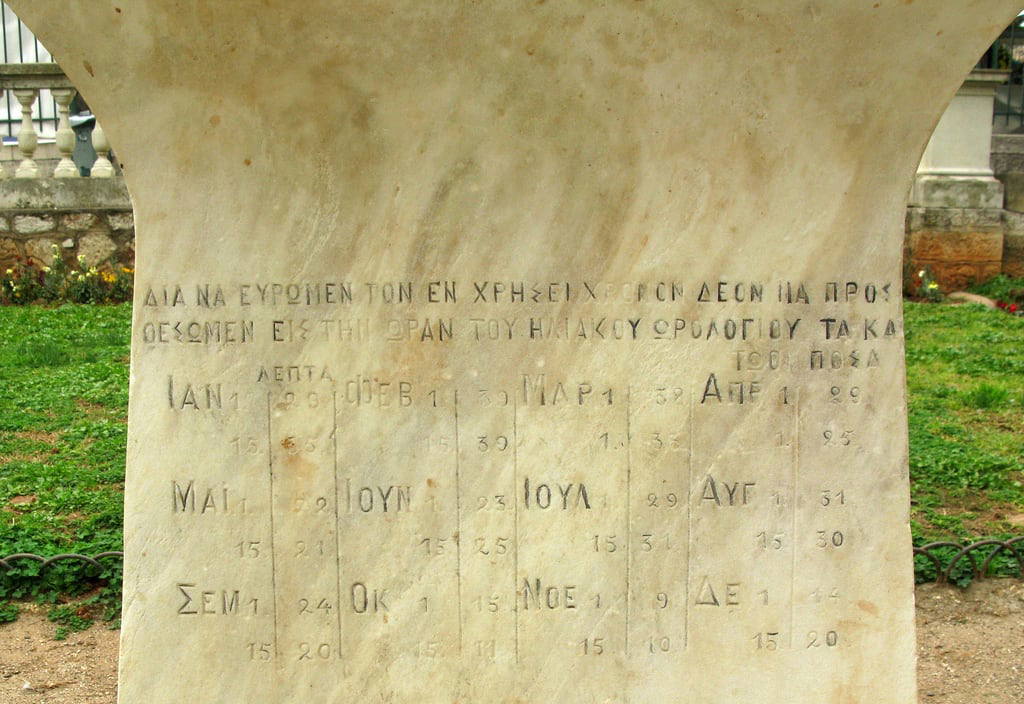 ΔΙΑ ΝΑ ΕΥΡΩΜΕΝ ΤΟΝ ΕΝ ΧΡΗΣΕΙ ΧΡΟΝΟΝ ΔΕΟΝ ΝΑ ΠΡΟΣ
ΘΕΣΩΜΕΝ ΕΙΣ ΤΗΝ ΩΡΑΝ ΤΟΥ ΗΛΙΑΚΟΥ ΩΡΟΛΟΓΙΟΥ ΤΑ ΚΑ
ΤΩΘΙ ΠΟΣΑ
ΛΕΠΤΑ
ΙΑΝ 1 29 ΦΕΒ 1 39 ΜΑΡ 1 38 ΑΠΡ 1 29
15 35 15 39 1 35 1 25
ΜΑΙ 1 22 ΙΟΥΝ 1 23 ΙΟΥΛ 1 29 ΑΥΓ 1 31
15 21 15 25 15 31 15 30
ΣΕΜ 1 24 ΟΚ 1 15 ΝΟΕ 1 9 ΔΕ 1 14
15 20 15 11 15 10 15 20